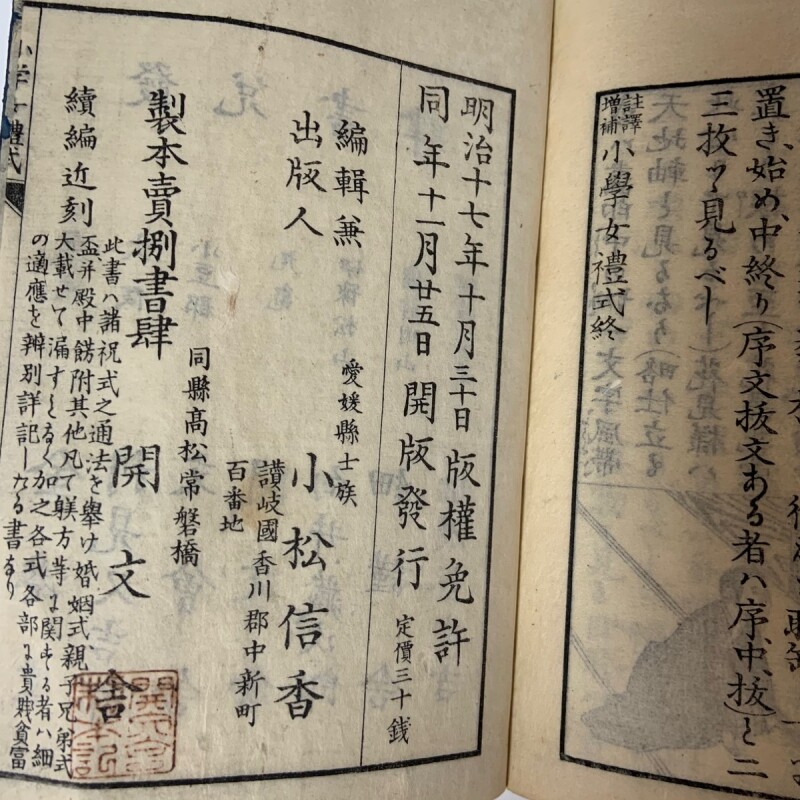 置き、始め、中終り(序文抜文ある者ハ序、中、抜)と二
三枚ツヽ見るべし
註譯
増補
小學女禮式終
明治十七年十月三十日版權免許
同年十一月廿五日開版發行
定價三十銭
編輯兼
出版人
愛媛縣士族
小松信香
讃岐國香川郡中新町
百番地
同縣高松常磐橋
製本賣捌書肆
開文舍
續編近刻
此書ハ諸祝式之通法を擧け婚姻式、親子兄弟式
盃并殿中餝附其他凡て躾方等に関する者ハ細
大載せて漏すとなく加之各式各部に貴賎貧富
の適應を辨別詳記しなる書なり
小学女禮式